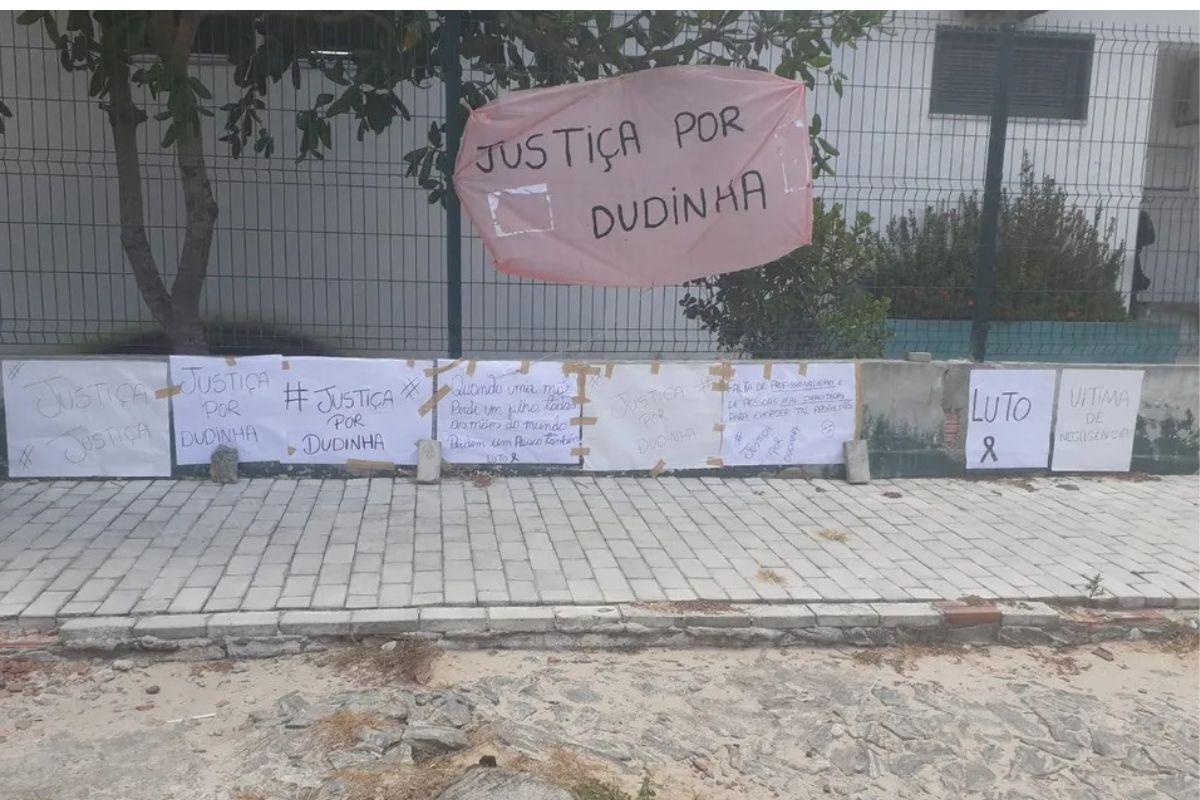 JUSTIÇA POR
DUDINHA
#
JUSTIÇA
JUSTIÇA
#
JUSTIÇA
POR
DUDINHA
# JUSTIÇA #
POR
DUDINHA
Quando uma mãe
Perde um filho, todas
as mães do mundo
Perdem um Pouco também
LUTO
#
JUSTIÇA #
POR
DUDINHA
FALTA DE PROFISSIONALISMO E
DE PESSOAS MAL CAPACITADAS
PARA EXERCER TAL PROFISSÃO
# JUSTIÇA
POR
DUDINHA
LUTO
VITIMA
DE
NEGLIGÊNCIA